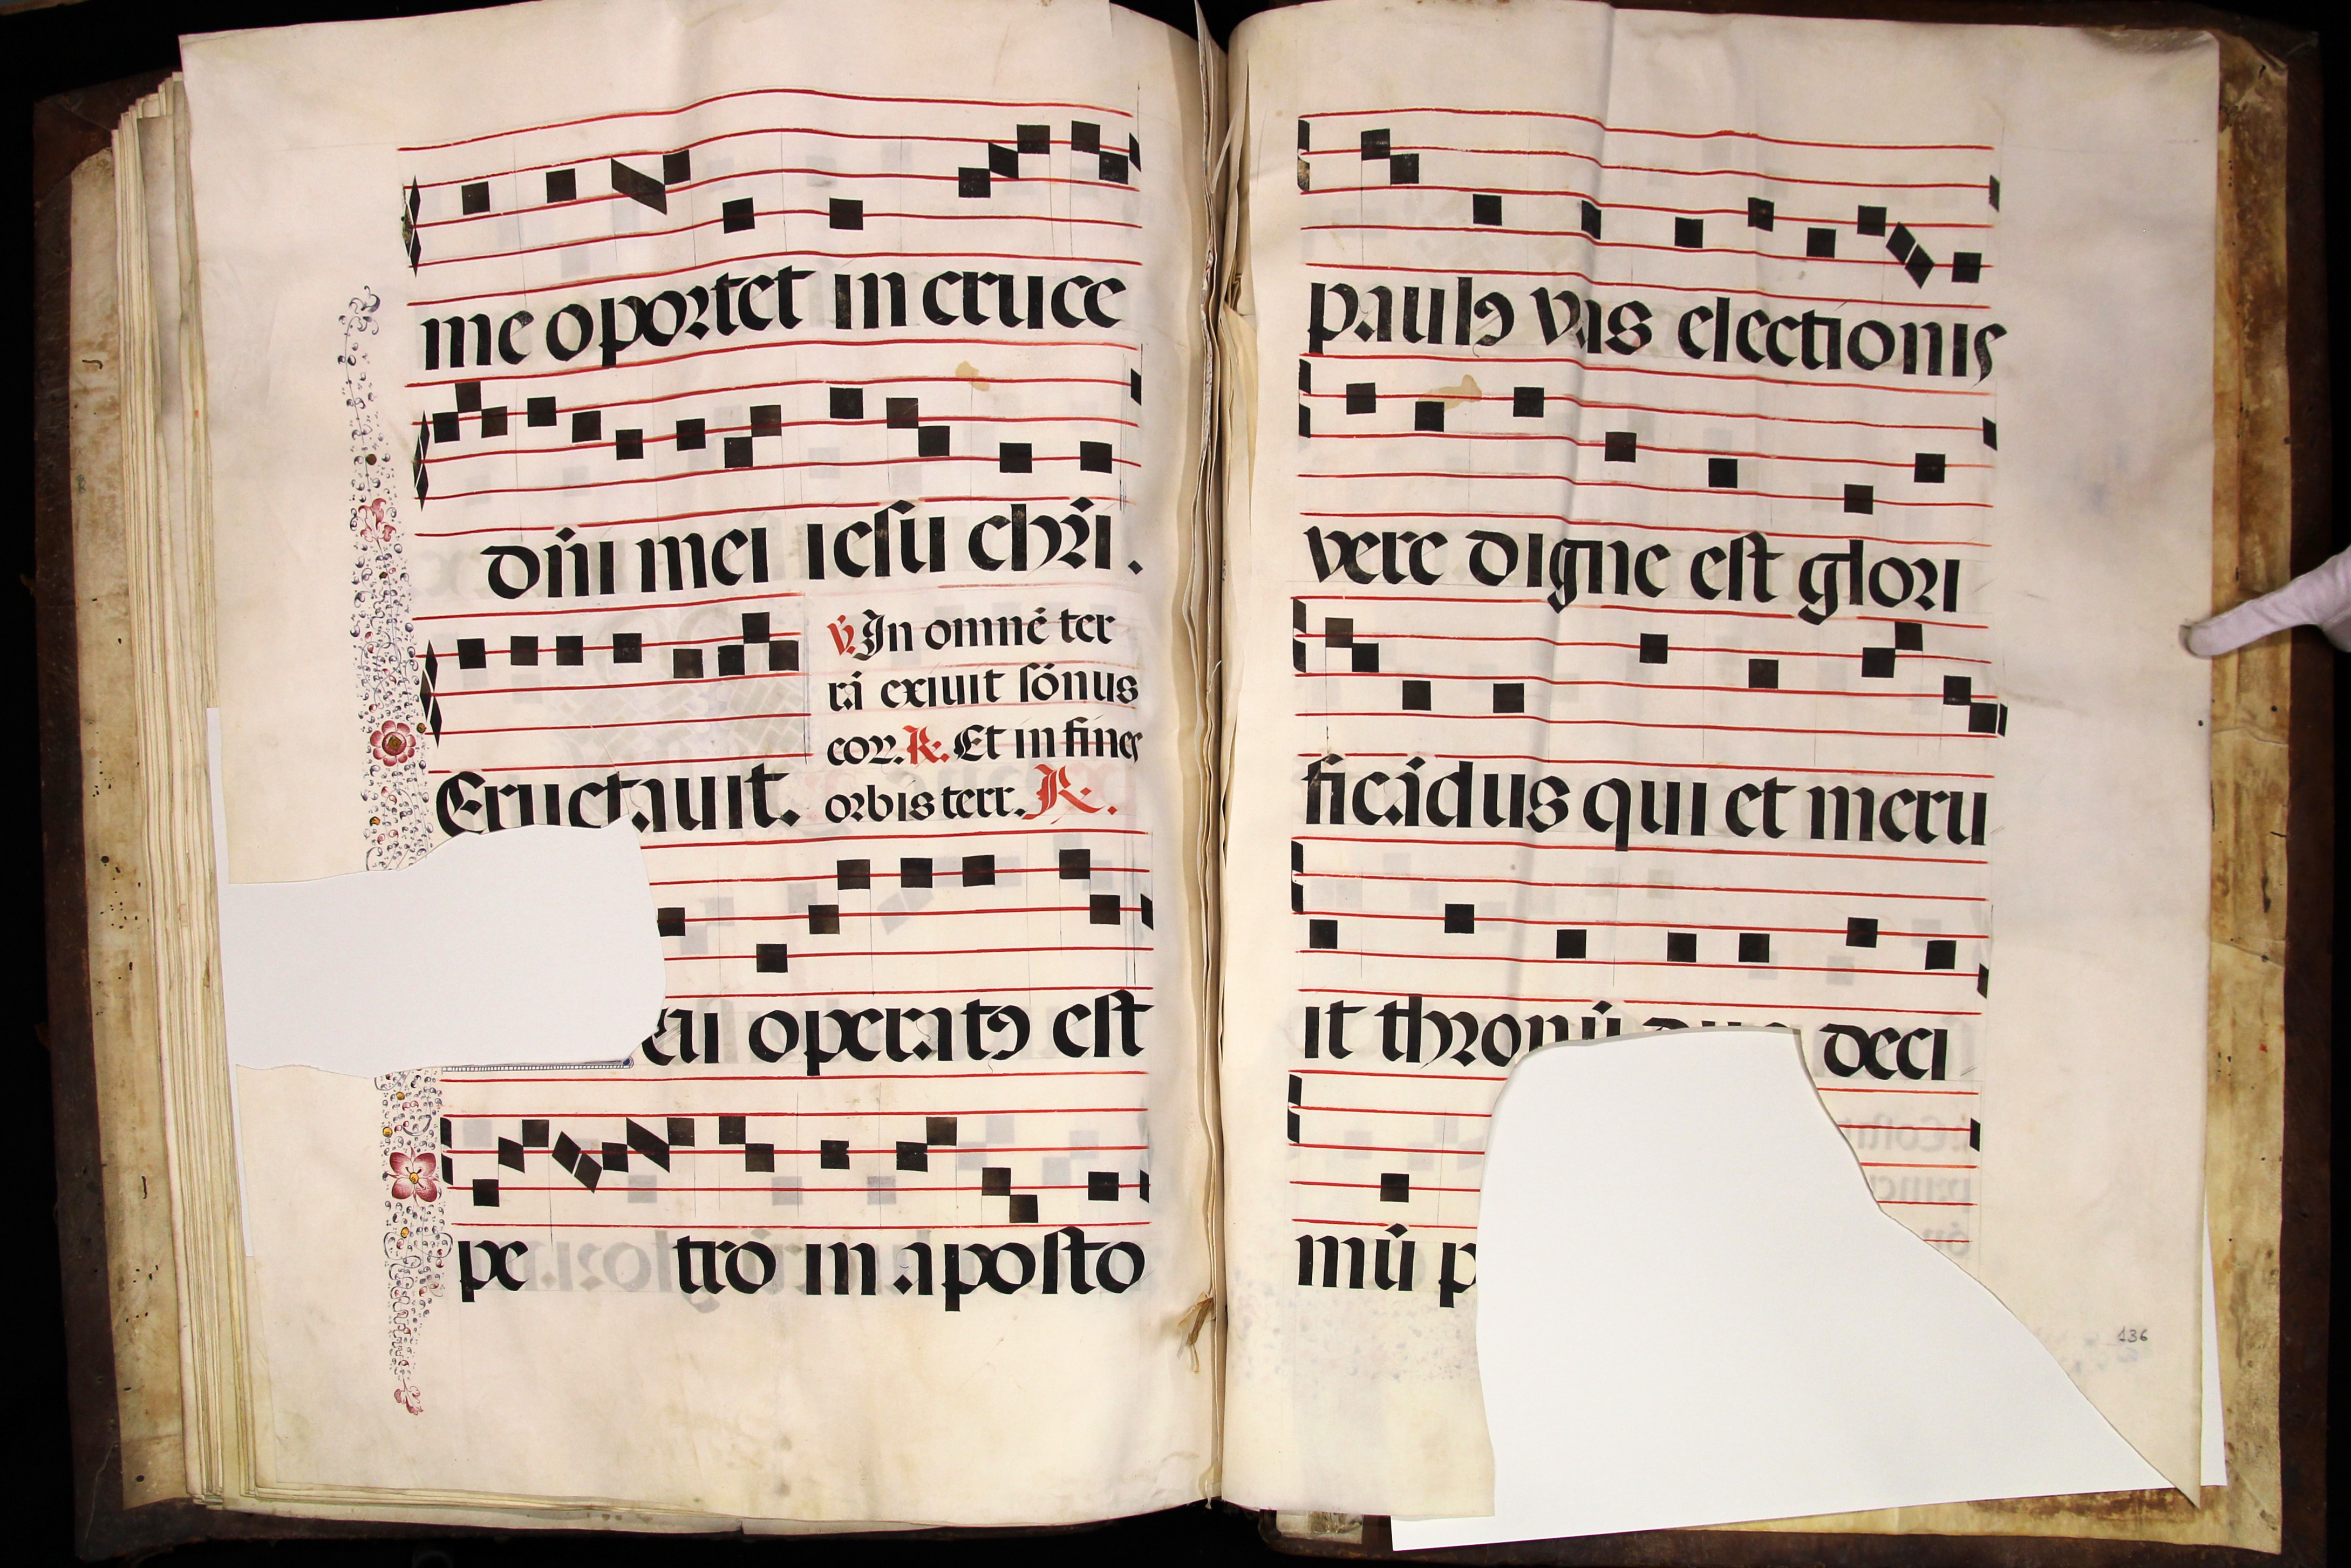 me oportet in cruce
dñi mei iesu chr̃i.
℣. In omnē ter
rā exiuit sonus
eoꝝ. ℟. Et in fines
Eructauit. orbis terr. ℟.
operatꝯ est
pe tro in aposto
paulꝯ vas electionis
vere digne est glori
ficādus qui et meru
it thronū deci
mū p
136